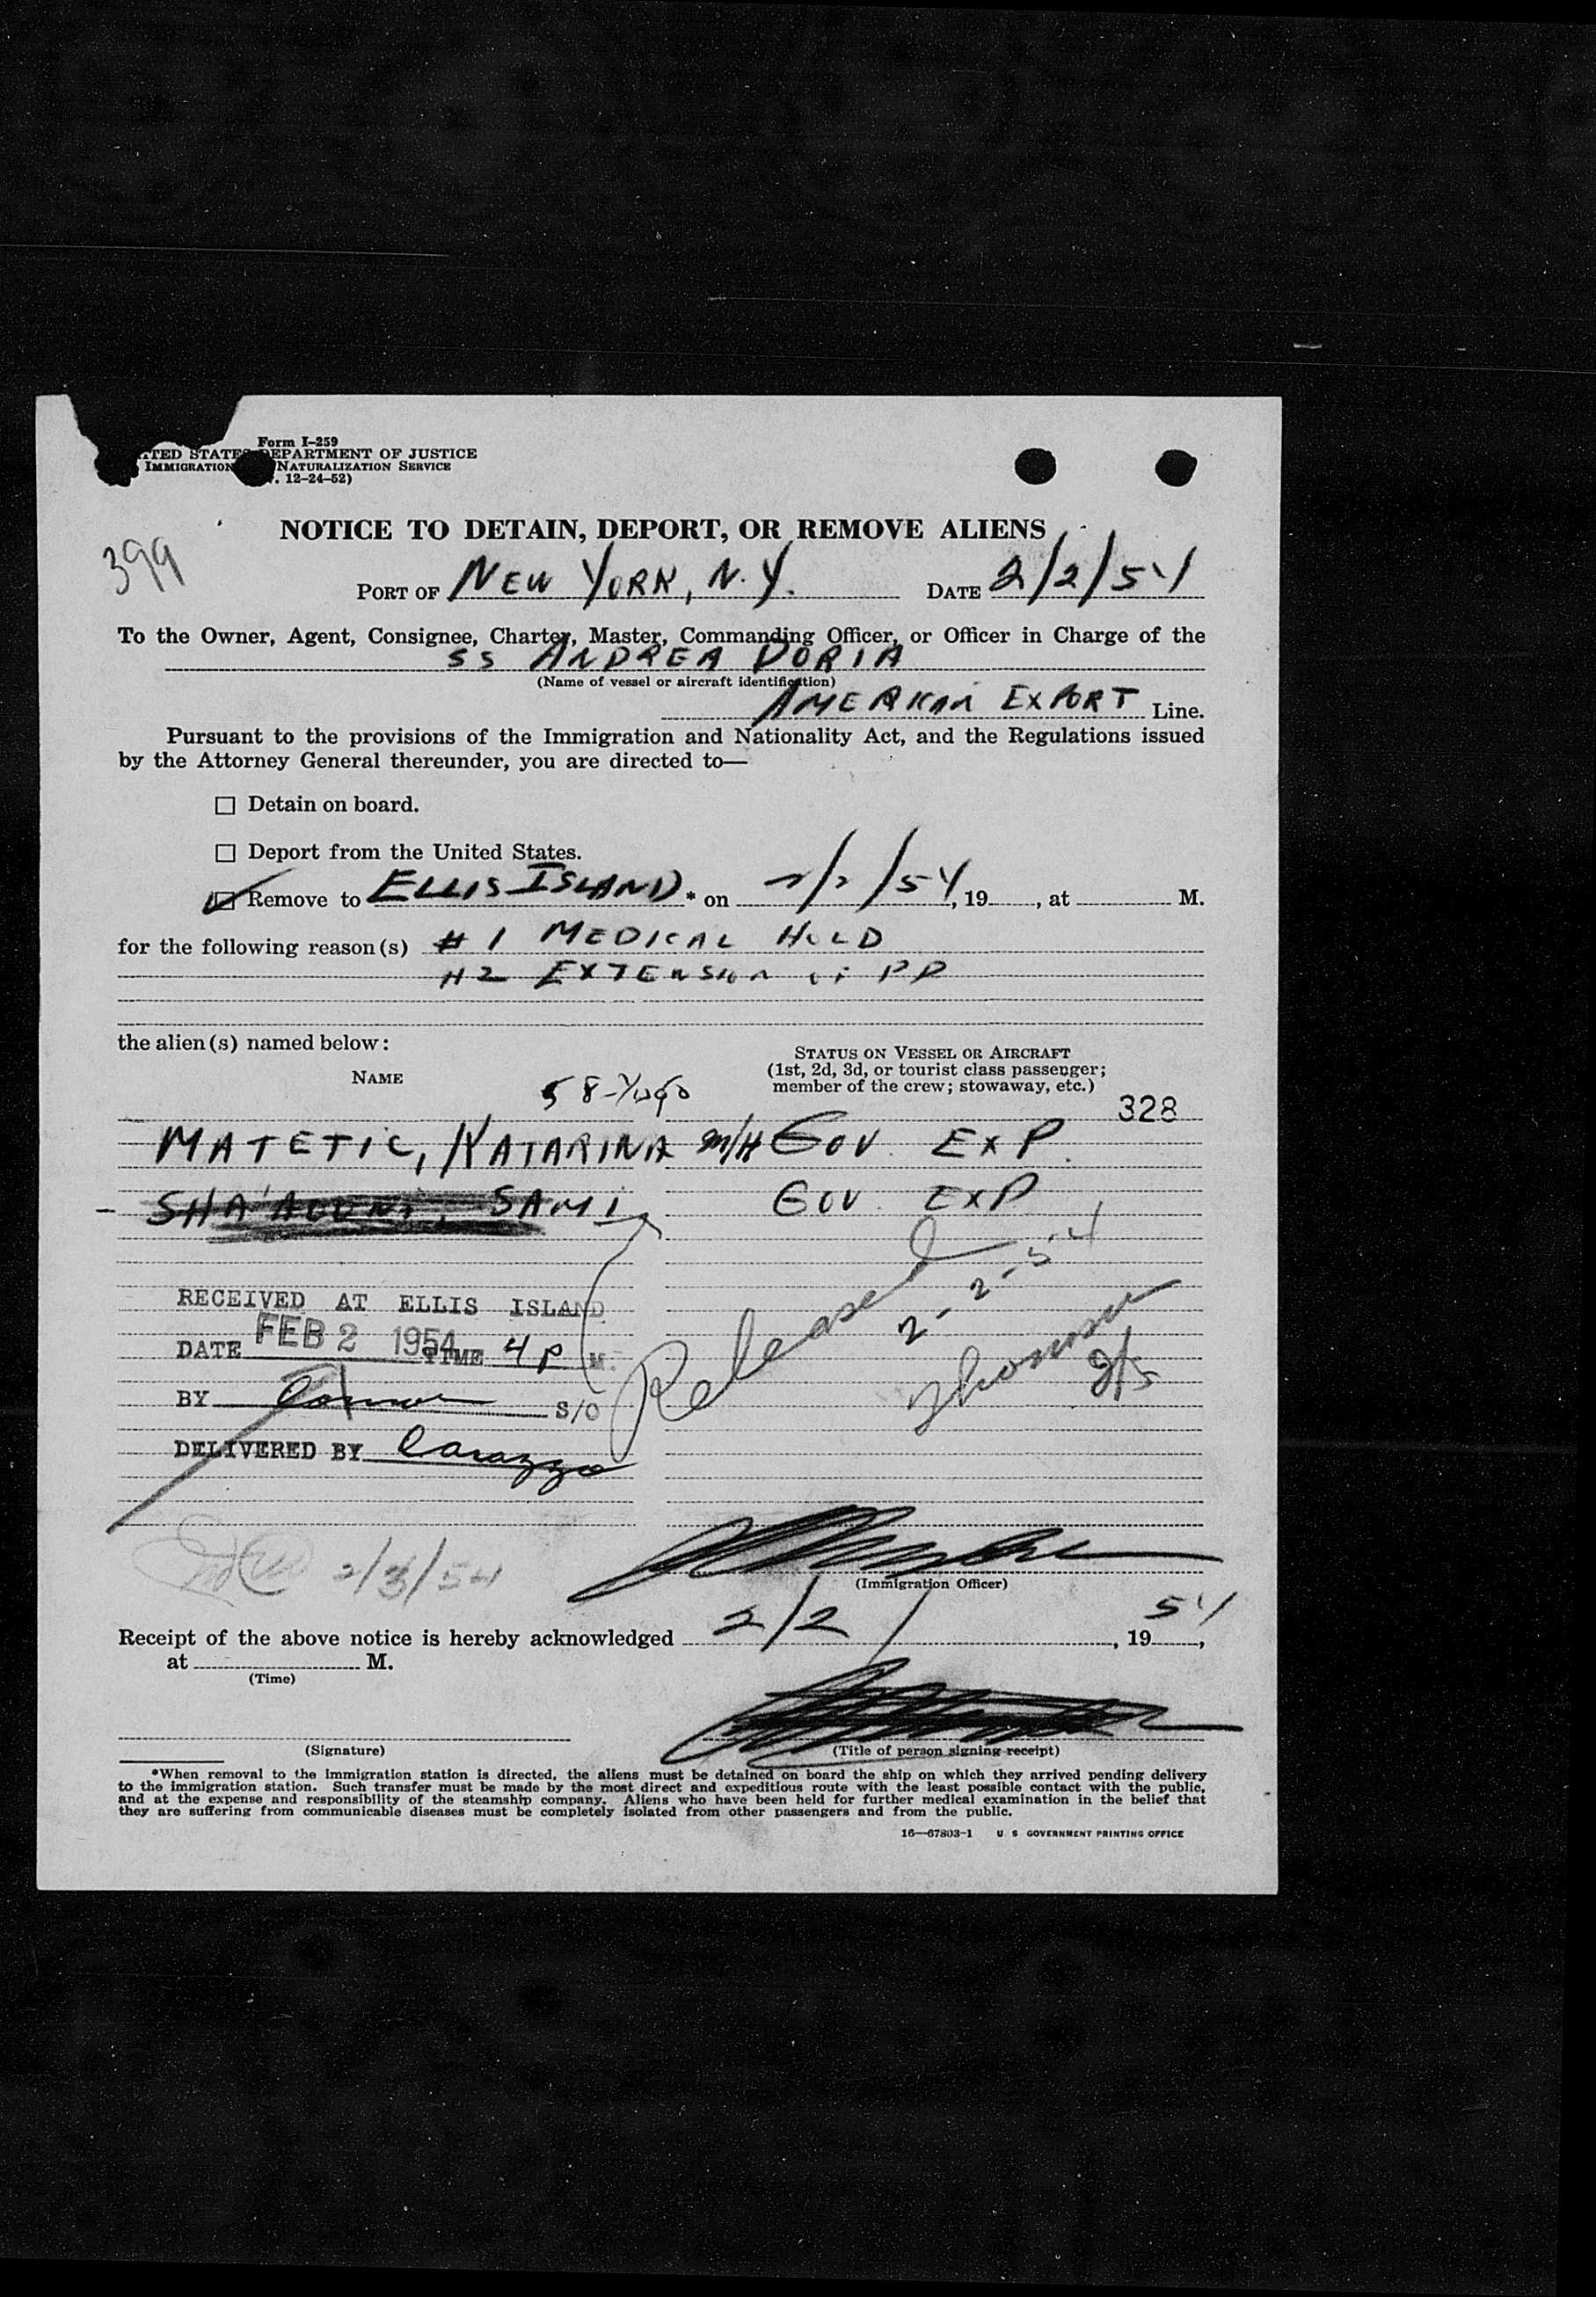 Form I-259
UNITED STATES DEPARTMENT OF JUSTICE
IMMIGRATION NATURALIZATION SERVICE
12-24-52)
NOTICE TO DETAIN, DEPORT, OR REMOVE ALIENS
399
PORT OF NEW YORK, N.Y. DATE 2/2/54
To the Owner, Agent, Consignee, Charter, Master, Commanding Officer, or Officer in Charge of the
SS ANDREA DORIA
(Name of vessel or aircraft identification)
AMERICAN EXPORT Line.
Pursuant to the provisions of the Immigration and Nationality Act, and the Regulations issued
by the Attorney General thereunder, you are directed to—
Detain on board.
Deport from the United States.
Remove to ELLIS ISLAND * on 2/2/54, 19 , at M.
for the following reason(s) #1 MEDICAL HOLD
#2 EXTENSION OF PP
the alien(s) named below:
NAME
STATUS ON VESSEL OR AIRCRAFT
(1st, 2d, 3d, or tourist class passenger;
member of the crew; stowaway, etc.)
328
MATETIC, KATARINA M/H GOV. EXP.
SAMI GOV. EXP
Released 2-2-54
RECEIVED AT ELLIS ISLAND
DATE FEB 2 1954 TIME 4 P M.
BY S/O
DELIVERED BY Carazzo
2/3/54
(Immigration Officer)
Receipt of the above notice is hereby acknowledged 2/2/ , 19 54,
at M.
(Time)
(Signature)
(Title of person signing receipt)
*When removal to the immigration station is directed, the aliens must be detained on board the ship on which they arrived pending delivery
to the immigration station. Such transfer must be made by the most direct and expeditious route with the least possible contact with the public,
and at the expense and responsibility of the steamship company. Aliens who have been held for further medical examination in the belief that
they are suffering from communicable diseases must be completely isolated from other passengers and from the public.
16—67803-1 U S GOVERNMENT PRINTING OFFICE